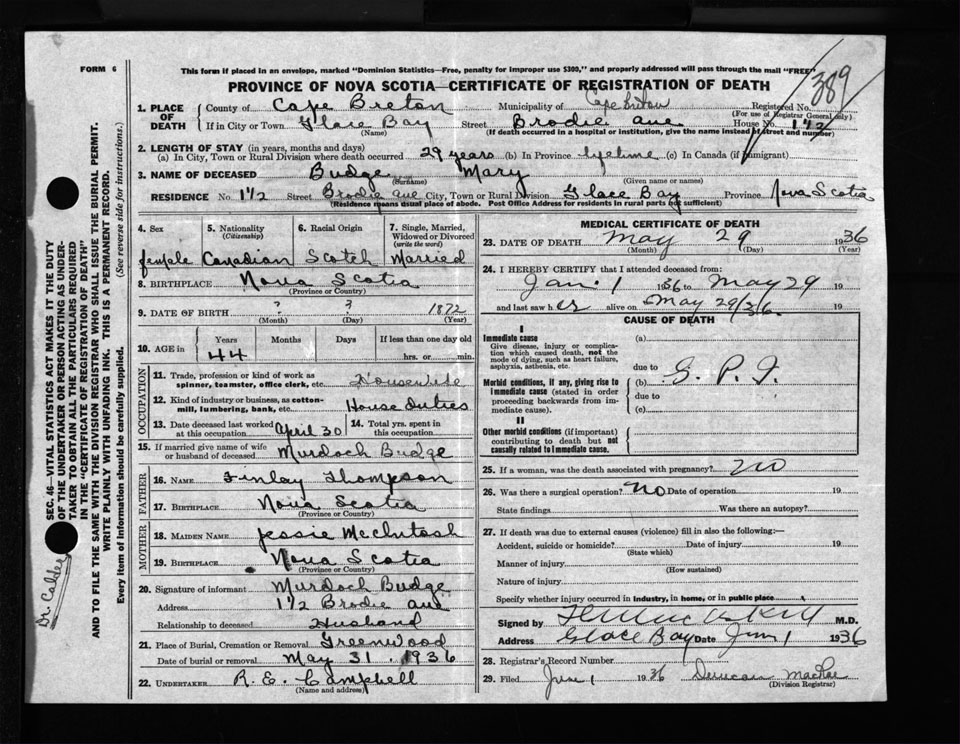 FORM 6
This form if placed in an envelope, marked "Dominion Statistics—Free, penalty for improper use $300," and properly addressed will pass through the mail "FREE"
389
PROVINCE OF NOVA SCOTIA—CERTIFICATE OF REGISTRATION OF DEATH
1. PLACE OF DEATH
County of Cape Breton Municipality of Cape Breton Registered No.
(For use of Registrar General only)
If in City or Town Glace Bay Street Brodie Ave House No. 1 1/2
(Name) (If death occurred in a hospital or institution, give the name instead of street and number)
2. LENGTH OF STAY (in years, months and days)
(a) In City, Town or Rural Division where death occurred 29 years (b) In Province lifetime (c) In Canada (if immigrant)
3. NAME OF DECEASED Budge Mary
(Surname) (Given name or names)
RESIDENCE No. 1 1/2 Street Brodie Ave City, Town or Rural Division Glace Bay Province Nova Scotia
(Residence means usual place of abode. Post Office Address for residents in rural parts not sufficient)
4. Sex 5. Nationality (Citizenship) 6. Racial Origin 7. Single, Married, Widowed or Divorced (write the word)
female Canadian Scotch Married
8. BIRTHPLACE Nova Scotia
(Province or Country)
9. DATE OF BIRTH ? ? 1872
(Month) (Day) (Year)
10. AGE in Years Months Days If less than one day old
44 hrs. or min.
OCCUPATION
11. Trade, profession or kind of work as spinner, teamster, office clerk, etc. Housewife
12. Kind of industry or business, as cotton-mill, lumbering, bank, etc. House duties
13. Date deceased last worked at this occupation April 30 14. Total yrs. spent in this occupation
15. If married give name of wife or husband of deceased Murdoch Budge
FATHER
16. NAME Finlay Thompson
17. BIRTHPLACE Nova Scotia
(Province or Country)
MOTHER
18. MAIDEN NAME Jessie McIntosh
19. BIRTHPLACE Nova Scotia
(Province or Country)
20. Signature of informant Murdoch Budge
Address 1 1/2 Brodie Ave
Relationship to deceased Husband
21. Place of Burial, Cremation or Removal Greenwood
Date of burial or removal May 31. 1936
22. UNDERTAKER R. E. Campbell
(Name and address)
MEDICAL CERTIFICATE OF DEATH
23. DATE OF DEATH May 29 1936
(Month) (Day) (Year)
24. I HEREBY CERTIFY that I attended deceased from:
Jan. 1 1936 to May 29 19
and last saw her alive on May 29/36. 19
CAUSE OF DEATH
I
Immediate cause
Give disease, injury or complication which caused death, not the mode of dying, such as heart failure, asphyxia, asthenia, etc.
(a)
due to
Morbid conditions, if any, giving rise to immediate cause (stated in order proceeding backwards from immediate cause).
(b) G. P. I.
due to
(c)
II
Other morbid conditions (if important) contributing to death but not causally related to immediate cause.
25. If a woman, was the death associated with pregnancy? no
26. Was there a surgical operation? no Date of operation 19
State findings Was there an autopsy?
27. If death was due to external causes (violence) fill in also the following:—
Accident, suicide or homicide? Date of injury 19
(State which)
Manner of injury
(How sustained)
Nature of injury
Specify whether injury occurred in industry, in home, or in public place
Signed by M.D.
Address Glace Bay Date Jun 1 1936
28. Registrar's Record Number
29. Filed June 1 1936 Duncan MacRae
(Division Registrar)
SEC. 46—VITAL STATISTICS ACT MAKES IT THE DUTY
OF THE UNDERTAKER OR PERSON ACTING AS UNDERTAKER TO OBTAIN ALL THE PARTICULARS REQUIRED
IN THE "CERTIFICATE OF REGISTRATION OF DEATH"
AND TO FILE THE SAME WITH THE DIVISION REGISTRAR WHO SHALL ISSUE THE BURIAL PERMIT.
WRITE PLAINLY WITH UNFADING INK. THIS IS A PERMANENT RECORD.
Every item of information should be carefully supplied. (See reverse side for instructions.)
Dr. Calder